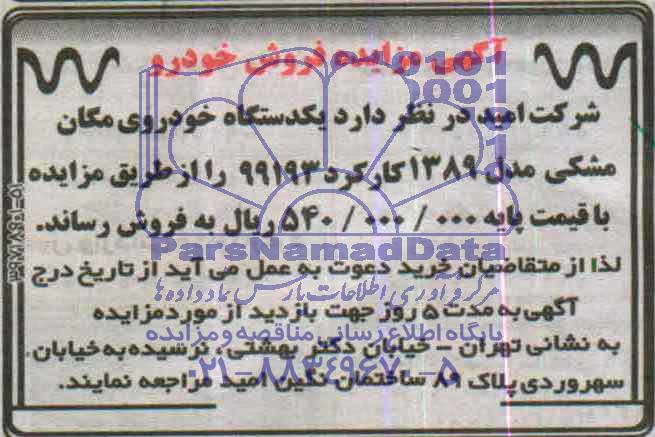 آگهی مزایده فروش خودرو
شرکت امید در نظر دارد یکدستگاه خودروی مگان
مشکی مدل ۱۳۸۹ کارکرد ۹۹۱۹۳ را از طریق مزایده
با قیمت پایه ۵۴۰/۰۰۰/۰۰۰ ریال به فروش رساند.
ParsNamadData
لذا از متقاضیان خرید دعوت به عمل می آید از تاریخ درج
مرکز فرآوری اطلاعات پارس نماد داده ها
آگهی به مدت ۵ روز جهت بازدید از مورد مزایده
پایگاه اطلاع رسانی مناقصه و مزایده
به نشانی تهران - خیابان دکتر بهشتی، نرسیده به خیابان
۰۲۱-۸۸۳۴۹۶۷۰-۵
سهروردی پلاک ۸۹ ساختمان نگین امید مراجعه نمایند.